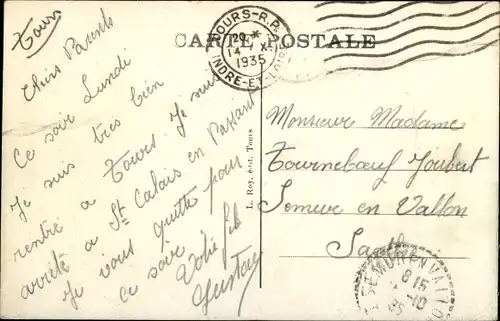 Tours
CARTE POSTALE
TOURS-R.P.
20 *
14 X
1935
INDRE-ET-LOIRE
Chers Parents
Ce soir Lundi
Je suis tres bien
rentré a Tours. Je suis
arrété a St Calais en Passant
Je vous quitte pour
ce soir
Votre fils
Gustav
L. Roy, édit. Tours
Monsieur Madame
Tourneboeuf Joubert
Semur en Vallon
Sarthe
SEMUR EN VALLON
8 15
10
35